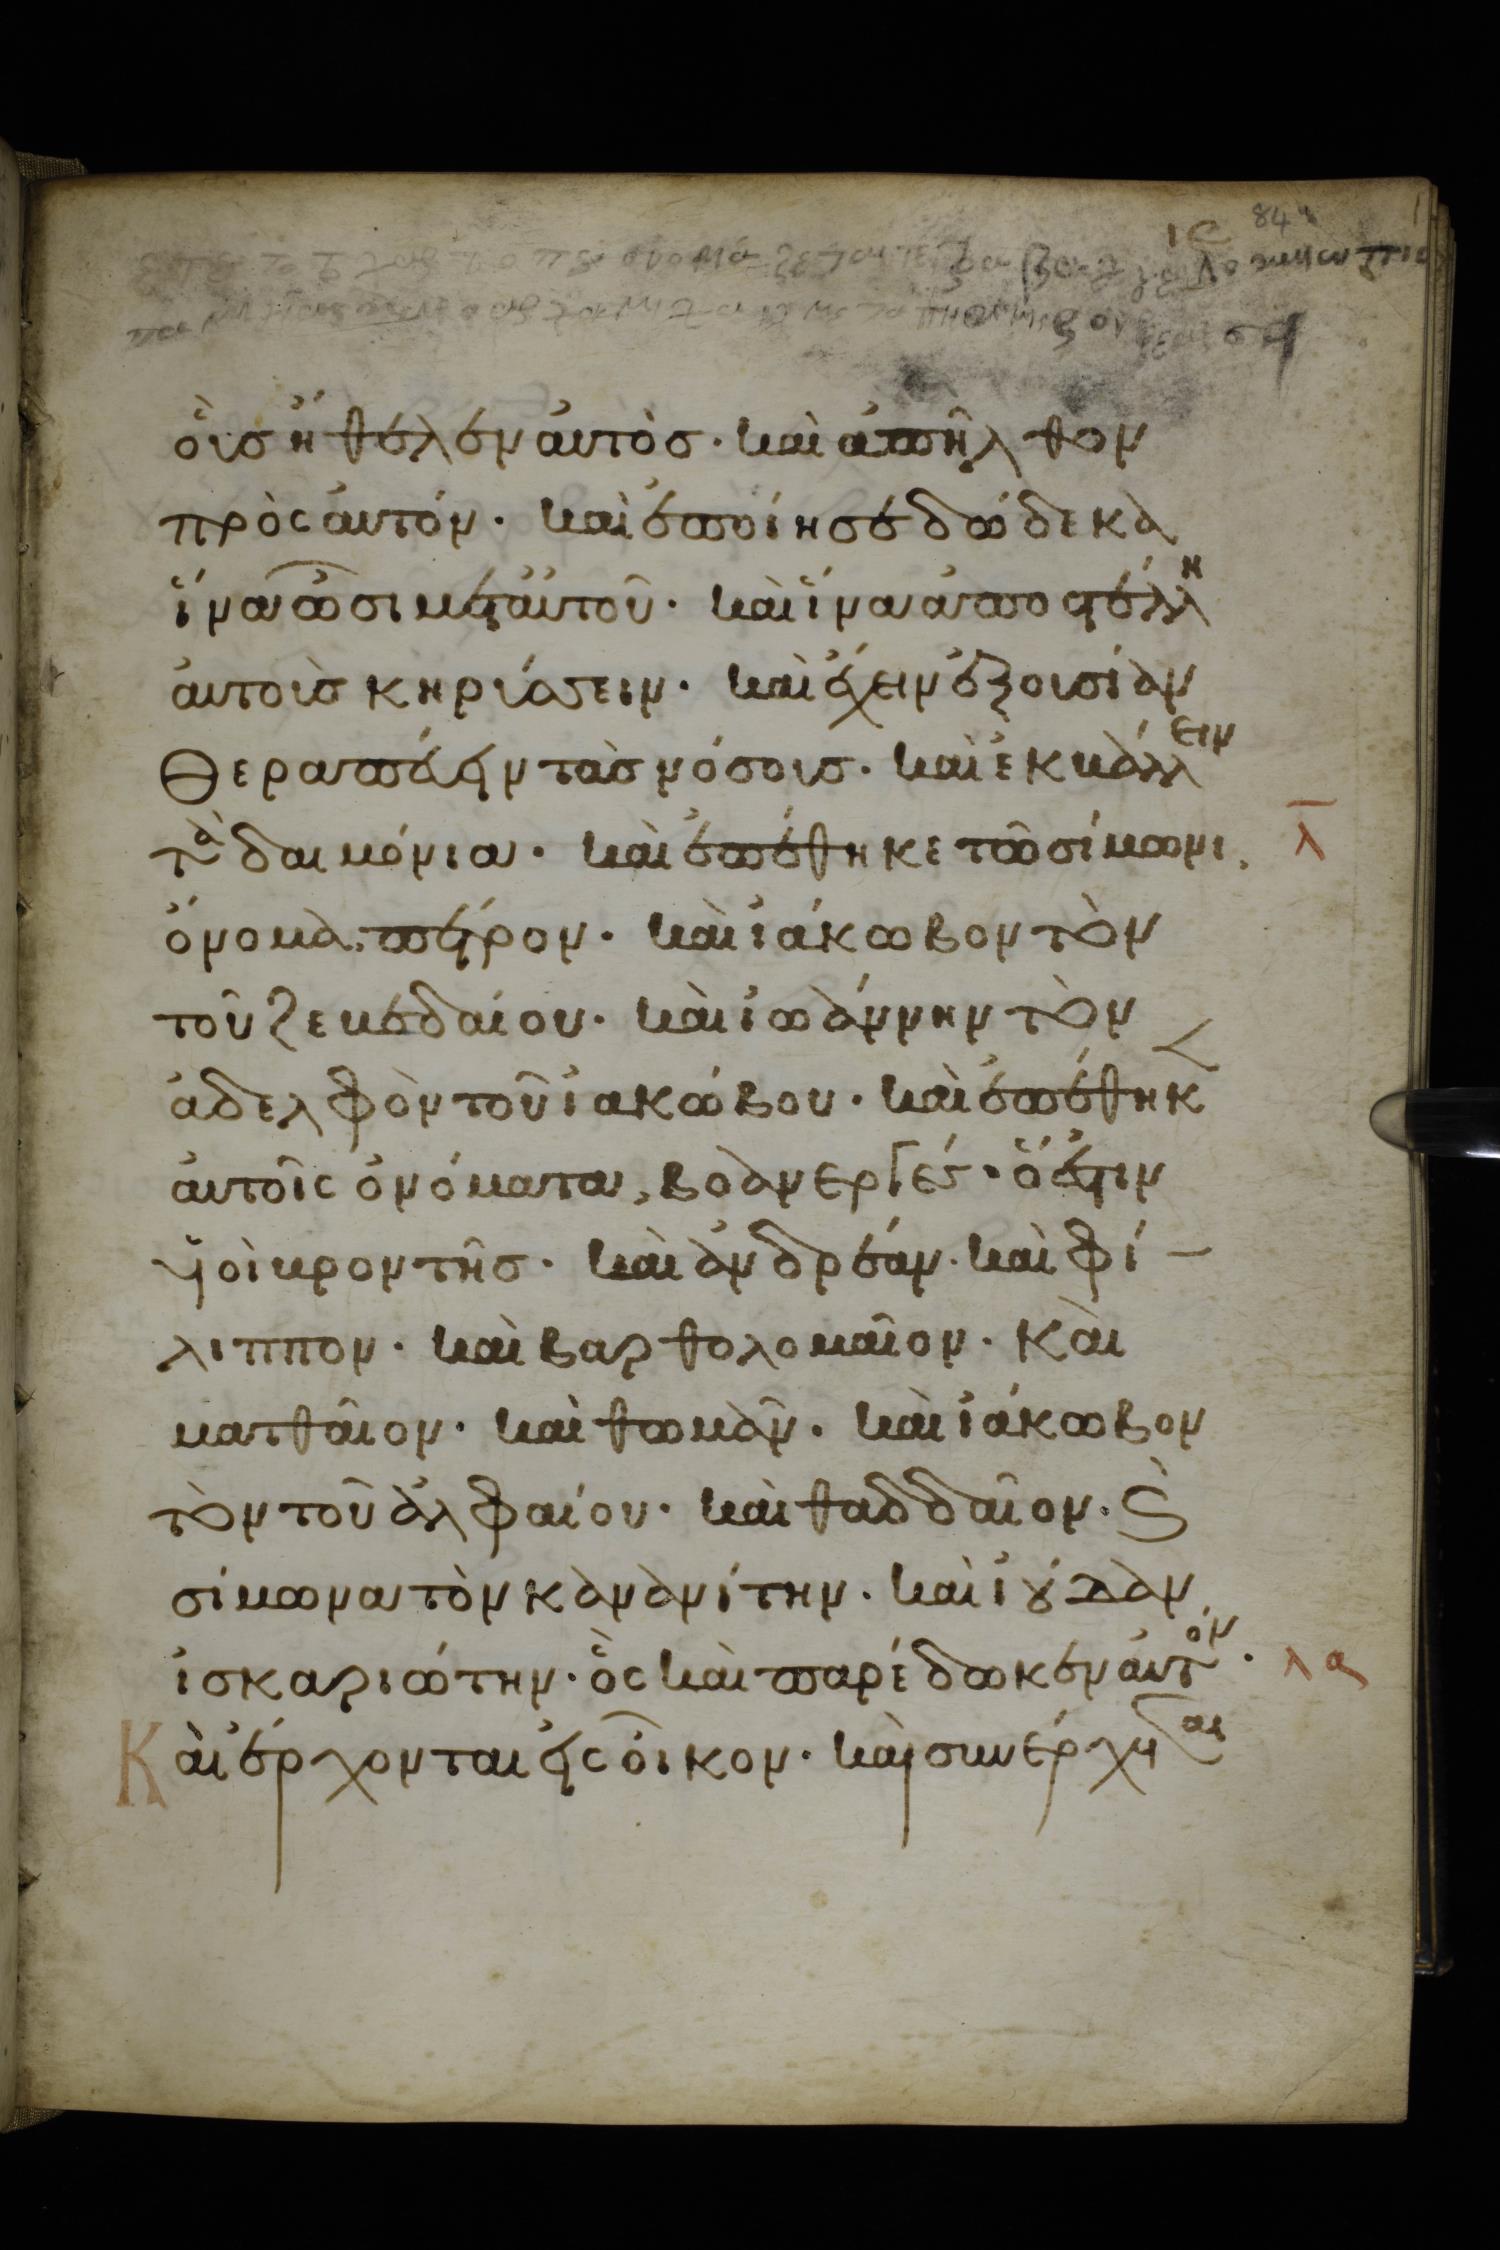 84
οὓσ ἤθελεν ἀυτὸσ· καὶ ἀπῆλθον
πρὸς ἀυτόν· καὶ ἐποίησε δώδεκα
ἵνα ὦσι μετ᾽ἀυτοῦ· καὶ ἵνα ἀποστέλλη
ἀυτοὺσ κηρύσσειν· καὶ ἔχειν ἐξουσίαν
θεραπέυειν τὰσ νόσουσ· καὶ ἐκβάλλειν
τὰ δαιμόνια· καὶ ἐπέθηκε τῶ σίμωνι, λ
ὄνομα, πέτρον· καὶ ἰάκωβον τὸν
τοῦ ζεβεδαίου· καὶ ἰωάννην τὸν
ἀδελφὸν τοῦ ἰακώβου· καὶ ἐπέθηκ
ἀυτοῖς ὀνόματα, βοανεργές· ὅ ἐστιν
ὑοὶ βροντῆσ· καὶ ἀνδρέαν· καὶ φί
λιππον· καὶ βαρθολομαῖον· καὶ
ματθαῖον· καὶ θωμᾶν· καὶ ἰάκωβον
τὸν τοῦ ἀλφαίου· καὶ θαδδαῖον· ϗ
σίμωνα τὸν κανανίτην· καὶ ἰούδαν
ἰσκαριώτην· ὃς καὶ παρέδωκεν ἀυτόν· λα
Καὶ ἔρχονται εἰς οἶκον· καὶ συνέρχεται